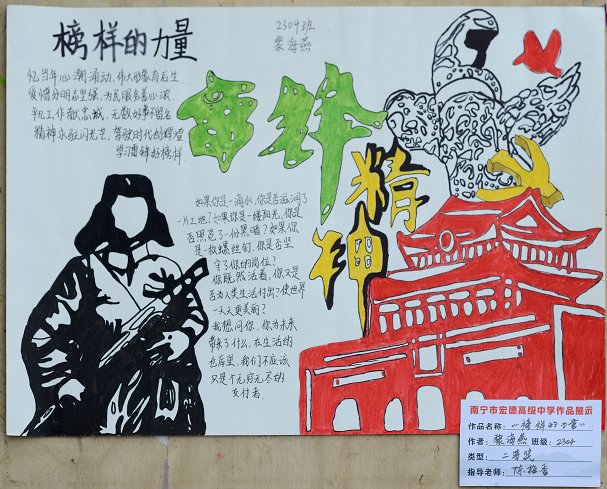 榜样的力量
2304班
黎海燕
忆当年心潮涌动，伟大形象育后生
爱憎分明品坚强，为民服务善心浓
平凡工作献忠诚，无数好事不留名
精神永驻闪光芒，驾驶时代创辉煌
学习雷锋好榜样
雷锋
精神
如果你是一滴水，你是否滋润了
一片土地？如果你是一缕阳光，你是
否照亮了一份黑暗？如果你
是一枚螺丝钉，你是否坚
守了你的岗位？
你既然活着，你又是
否为人类生活付出？使世界
一天天更美丽？
我想问你，你为未来
带来了什么，在生活的
仓库里，我们不应该
只是个无穷无尽的
支付者
南宁市宏德高级中学作品展示
作品名称：《榜样的力量》
作者：黎海燕 班级：2304
类型：二等奖
指导老师：陈梅香